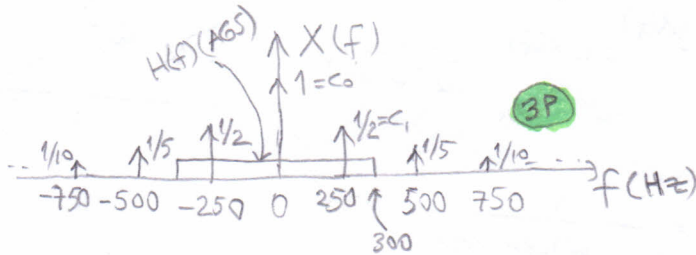 X(f)
H(f)(AGS)
1=C₀
3P
1/10 1/5 1/2 1/2=C₁ 1/5 1/10
... -750 -500 -250 0 250 500 750 ... f(Hz)
300